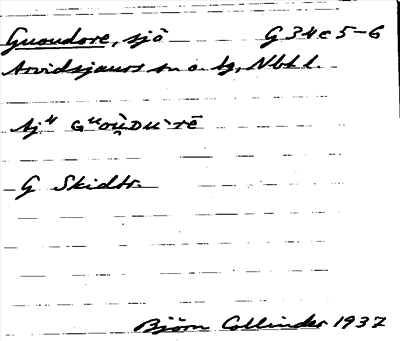 Guoudore, sjö G 34c 5-6
Arvidsjaurs sn o. tg, Nbt l.
G Skidtr.
Björn Collinder 1937